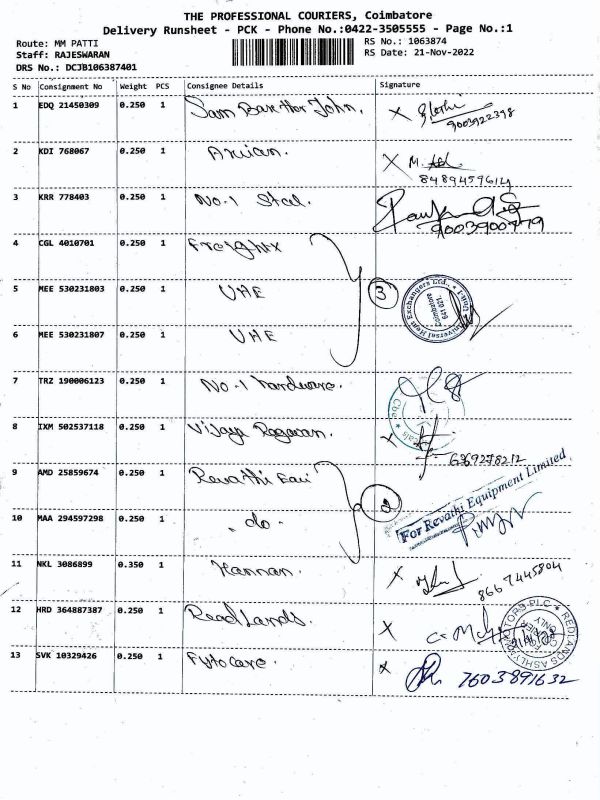 THE PROFESSIONAL COURIERS, Coimbatore
Delivery Runsheet - PCK - Phone No.:0422-3505555 - Page No.:1
Route: MM PATTI
Staff: RAJESWARAN
DRS No.: DCJB106387401
RS No.: 1063874
RS Date: 21-Nov-2022
S No Consignment No Weight PCS Consignee Details Signature
1 EDQ 21450309 0.250 1 Sam John.
9003922398
2 KDI 768067 0.250 1
8489459614
3 KRR 778403 0.250 1 No.1 Stal.
9003900779
4 CGL 4010701 0.250 1 Freightx
5 MEE 530231803 0.250 1 UHE 3
Universal Heat Exchangers Ltd., * Unit I * Coimbatore 641 021.
6 MEE 530231807 0.250 1 UHE
7 TRZ 190006123 0.250 1 No.1 hardware.
8 IXM 502537118 0.250 1 Vijaya Ragavan.
9 AMD 25859674 0.250 1 Revathi 2
For Revathi Equipment Limited
10 MAA 294597298 0.250 1 - do -
11 NKL 3086899 0.350 1 Kannan.
8667445804
12 HRD 364887387 0.250 1 Readlands.
REDLANDS ASHLYN MOTORS PLC COURIER ONLY
13 SVK 10329426 0.250 1 Fytocare.
7603891632